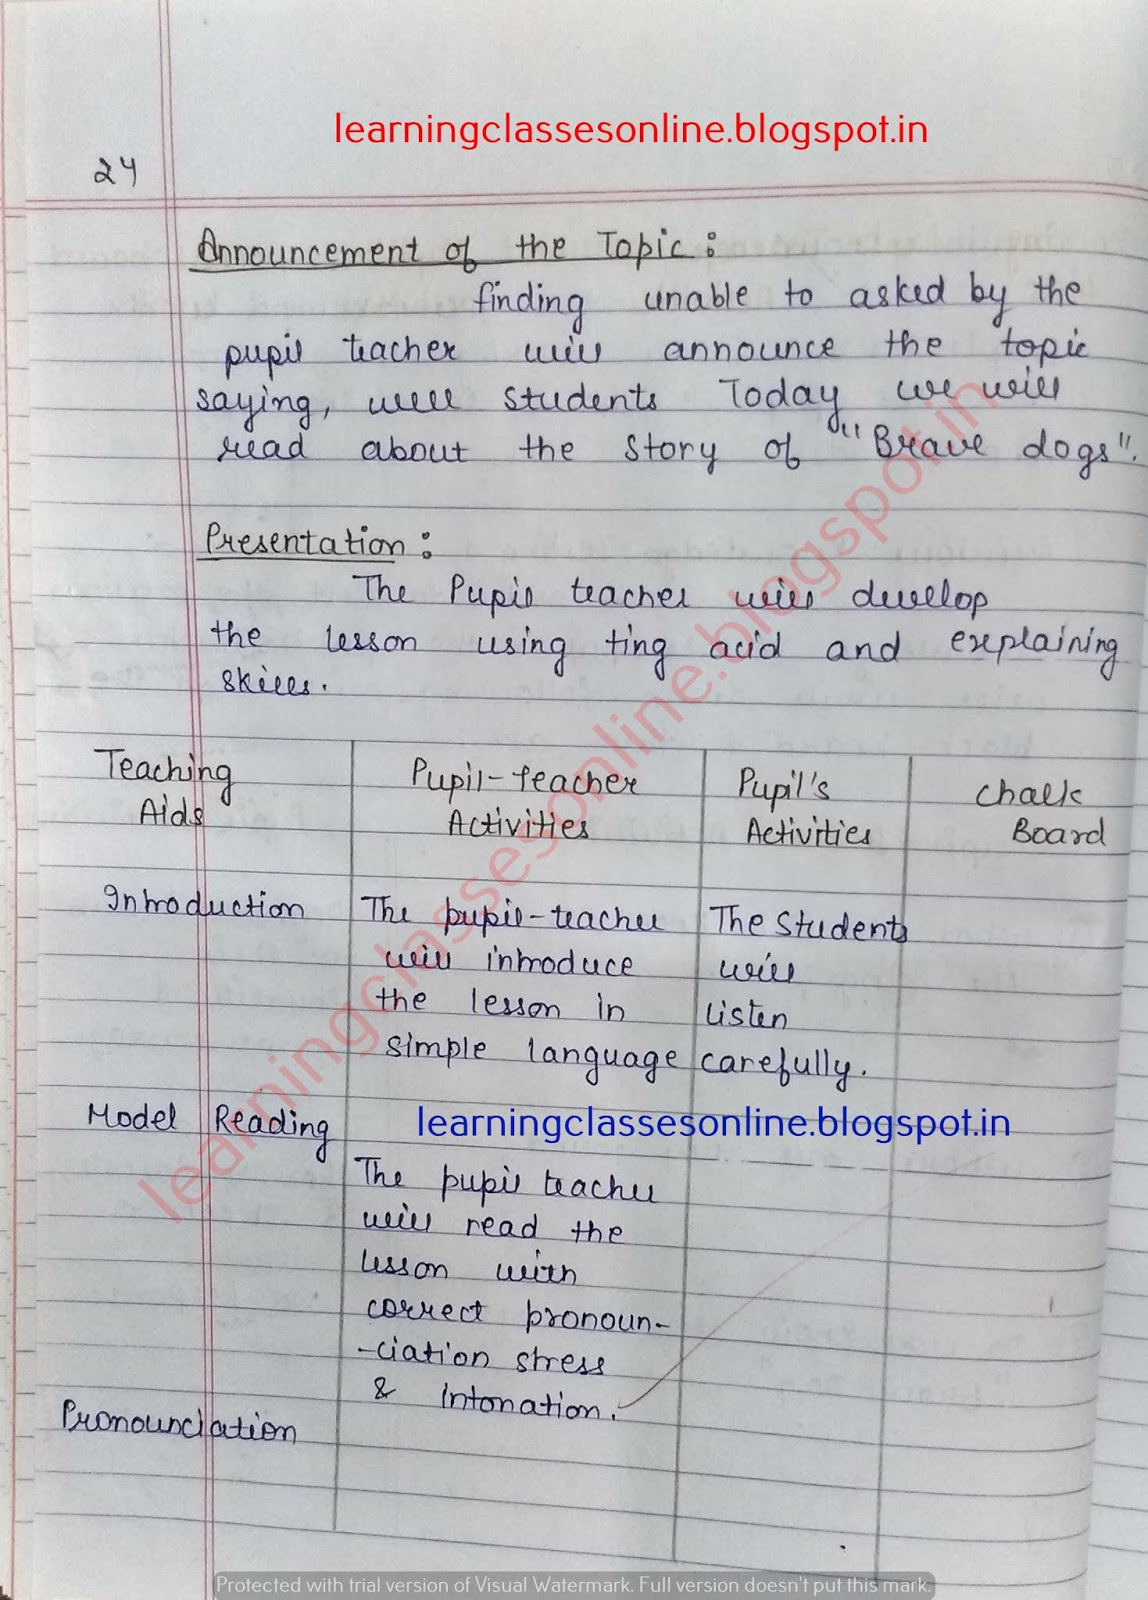 learningclassesonline.blogspot.in
24
Announcement of the Topic :
finding unable to asked by the
pupil teacher will announce the topic
saying, well students Today we will
read about the story of "Brave dogs".
Presentation :
The Pupil teacher will develop
the lesson using ting acid and explaining
skills.
Teaching Aids
Pupil-teacher Activities
Pupil's Activities
Chalk Board
Introduction
The pupil-teacher
will introduce
the lesson in
simple language
The Students
will
listen
carefully.
Model Reading
learningclassesonline.blogspot.in
The pupil teacher
will read the
lesson with
correct pronoun-
-ciation stress
& intonation.
Pronounciation
learningclassesonline.blogspot.in
Protected with trial version of Visual Watermark. Full version doesn't put this mark.